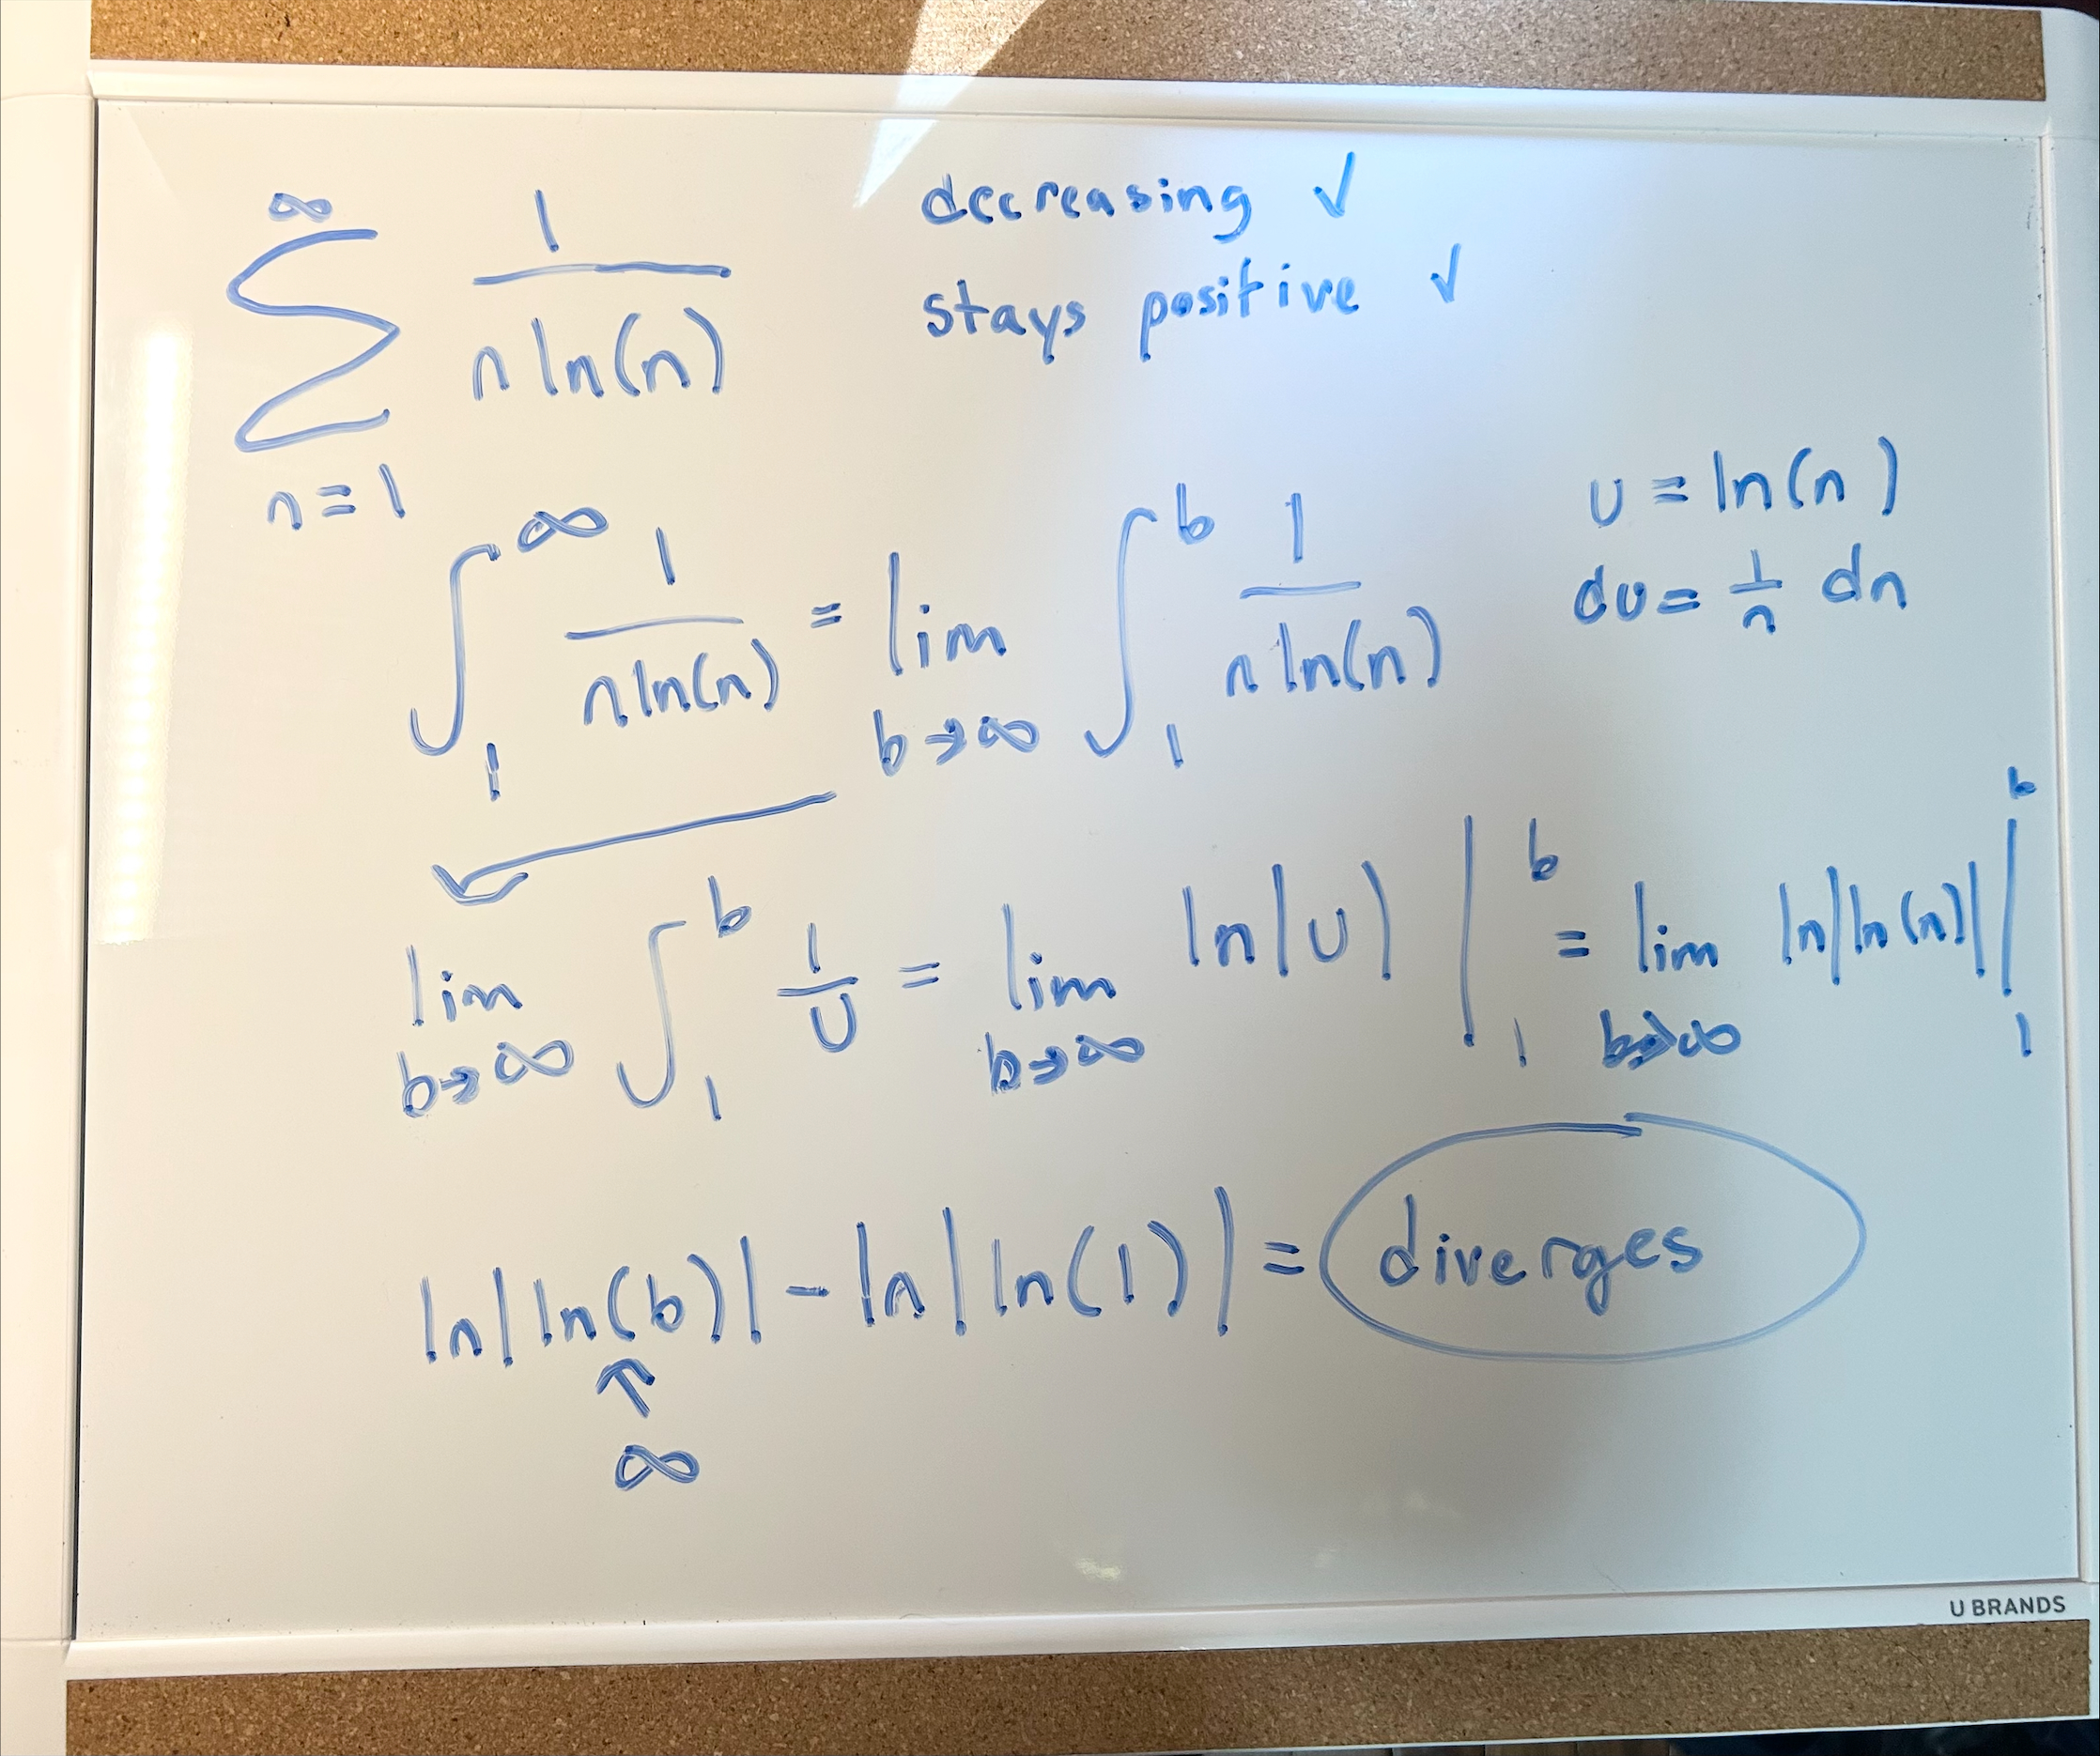 ∞
∑ 1/(n ln(n))
n=1
decreasing ✓
stays positive ✓
∫₁^∞ 1/(n ln(n)) = lim b→∞ ∫₁^b 1/(n ln(n))
u = ln(n)
du = 1/n dn
lim b→∞ ∫₁^b 1/u = lim b→∞ ln|u| |₁^b = lim b→∞ ln|ln(n)| |₁^b
ln|ln(b)| - ln|ln(1)| = diverges
↑
∞
U BRANDS